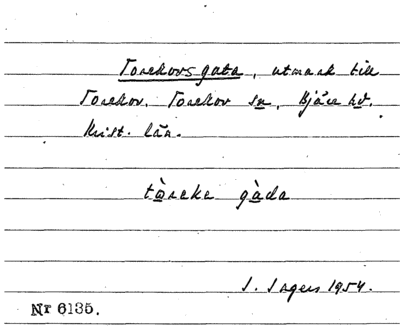 Torekovs gata, utmark till
Torekov. Torekov sn, Bjäre hd.
Krist. län.
tòreke gàda
I. Ingers 1954.
Nr 6135.